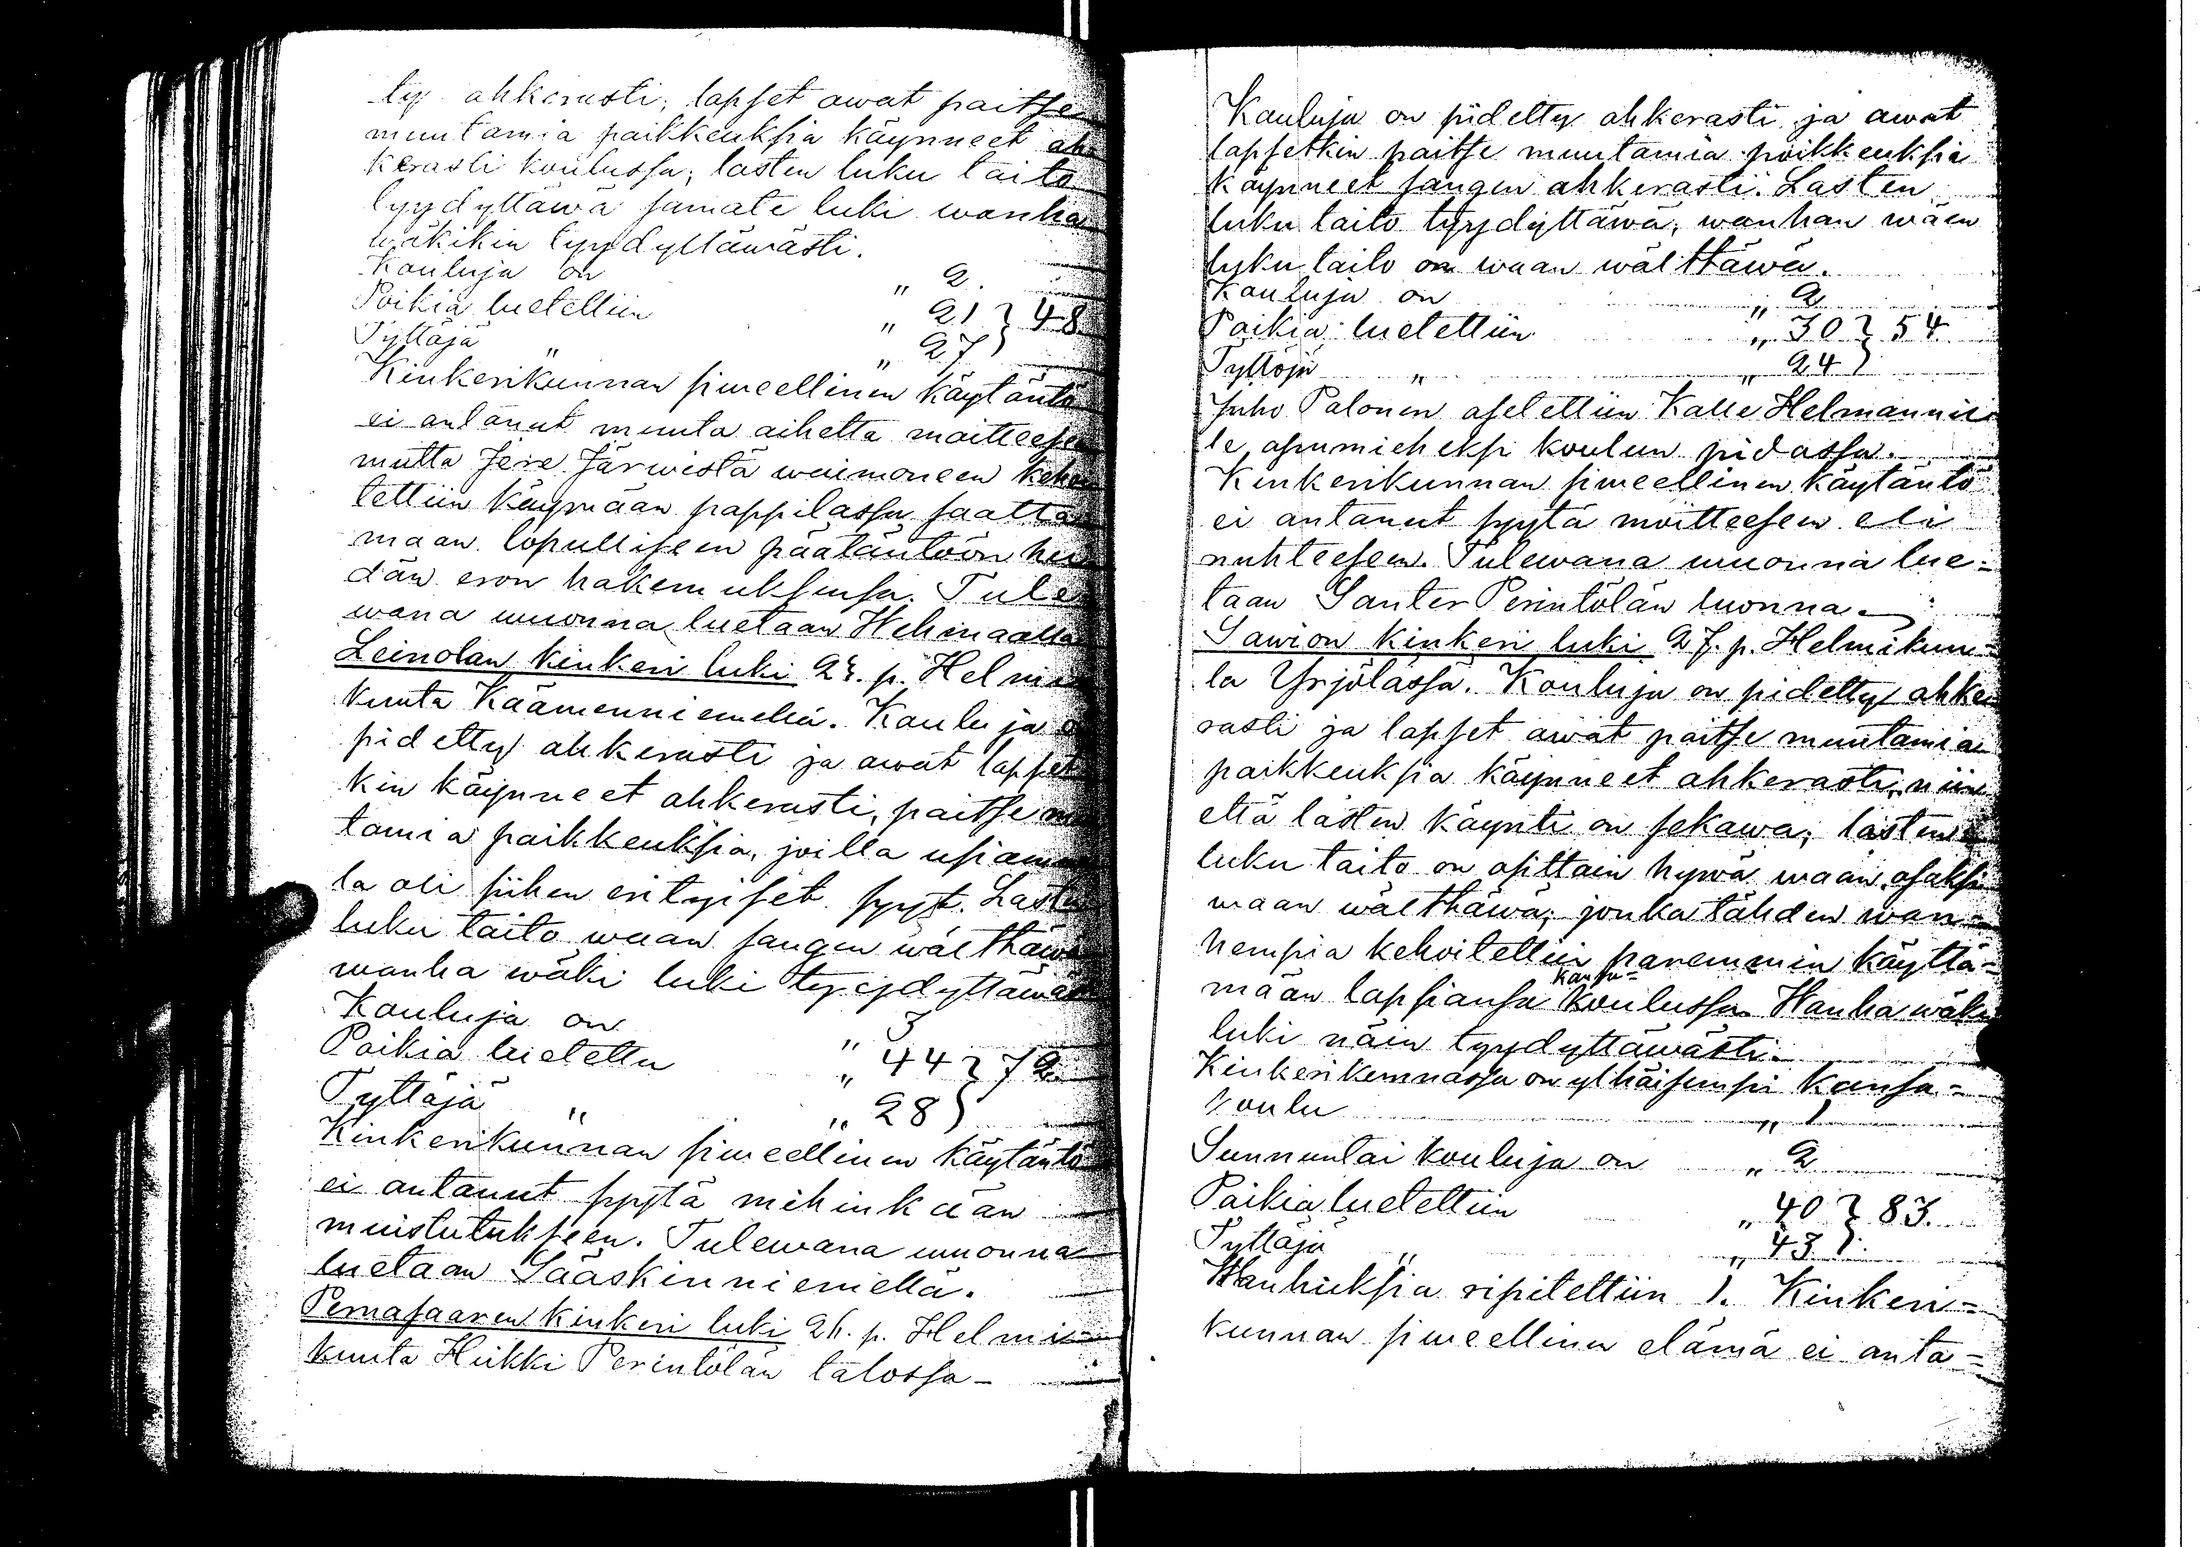 ty ahkerasti; lapset awat paitse
muutamia paikkeuksia käynneet ah
kerasti koulussa; lasten luku taito
tyydyttäwä samate luki wanha
wäkikin tyydyttäwästi.
Kouluja on „ 2.
Poikia luetettiin „ 21 } 48
Tyttäjä „ „ 27 }
Kinkerikunnan siweellinen käytäntö
ei antanut muuta aihetta moitteesen
mutta Jere Järwistä waimoneen keho
tettiin käymään pappilassa saatta
maan lopulliseen päätäntöön hei
dän eron hakemuksensa. Tule
wana wuonna luetaan Wehmaalla
Leinolan kinkeri luki 25. p. Helmi
kuuta Käämenniemellä. Kouluja o
pidetty ahkerasti ja awat lapset
kin käynneet ahkerasti, paitse mu
tamia paikkeuksia, joilla usiamm
la oli siihen erityiset syyt. Lasten
luku taito waan sangen wälttäwä
wanha wäki luki tyydyttäwäs
Kouluja on „ 3
Poikia luetettu „ 44 } 72
Tyttäjä „ „ 28 }
Kinkerikunnan siweellinen käytäntö
ei antanut syytä mihinkään
muistutukseen. Tulewana wuonna
luetaan Sääskinniemellä.
Pernasaaren kinkeri luki 26. p. Helmi=
kuuta Heikki Perintölän talossa –
Kouluja on pidetty ahkerasti ja awat
lapsetkin paitse muutamia poikkeuksia
käynneet sangen ahkerasti. Lasten
luku taito tyydyttäwä, wanhan wäen
lyku taito on waan wälttäwä.
Kouluja on „ 2
Poikia luetettiin „ 30 } 54
Tyttöjä „ „ 24 }
Juho Palonen asetettiin Kalle Helmannil
le apumieheksi koulun pidossa.
Kinkerikunnan siweellinen käytäntö
ei antanut syytä moitteesen eli
nuhteesen. Tulewana wuonna lue=
taan Santer Perintölän luonna.
Sawion kinkeri luki 27. p. Helmikuu=
ta Yrjölässä. Kouluja on pidetty ahke
rasti ja lapset awat paitse muutamia
paikkeuksia käynneet ahkerasti; niin
että lasten käynti on sekawa; lasten
luku taito on osittain hywä waan osaksi
waan wälttäwä; jonka tähden wan=
hempia kehoitettiin paremmin käyttä=
mään lapsiansa kansa=koulussa. Wanha wäki
luki näin tyydyttäwästi.
Kinkerikunnassa on ylhäisempi kansa=
koulu „ 1
Sunnuntai kouluja on „ 2
Poikia luetettiin „ 40 } 83.
Tyttäjä „ „ 43 }
Wanhuksia ripitettiin 1. Kinkeri=
kunnan siweellinen elämä ei anta=